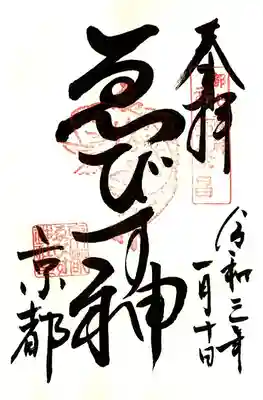 奉拝
令和三年
一月十日
ゑびす神
京都